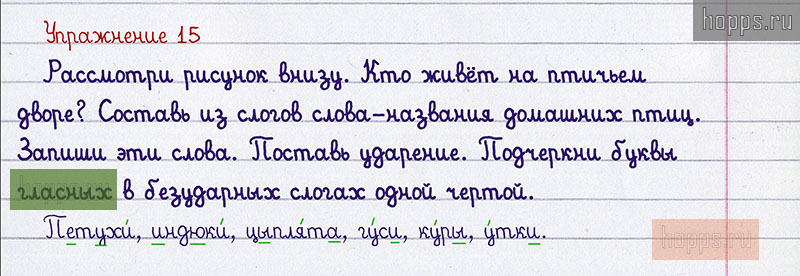 hopps.ru
Упражнение 15
Рассмотри рисунок внизу. Кто живёт на птичьем
дворе? Составь из слогов слова-названия домашних птиц.
Запиши эти слова. Поставь ударение. Подчеркни буквы
гласных в безударных слогах одной чертой.
Петухи́, индюки́, цыпля́та, гу́си, ку́ры, у́тки.
hopps.ru